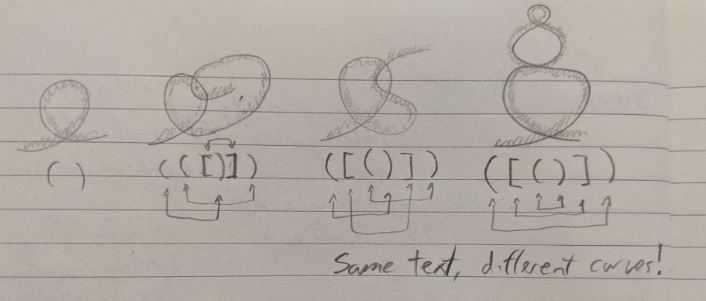 ( ) (([)]) ([()]) ([()])
Same text, different curves!